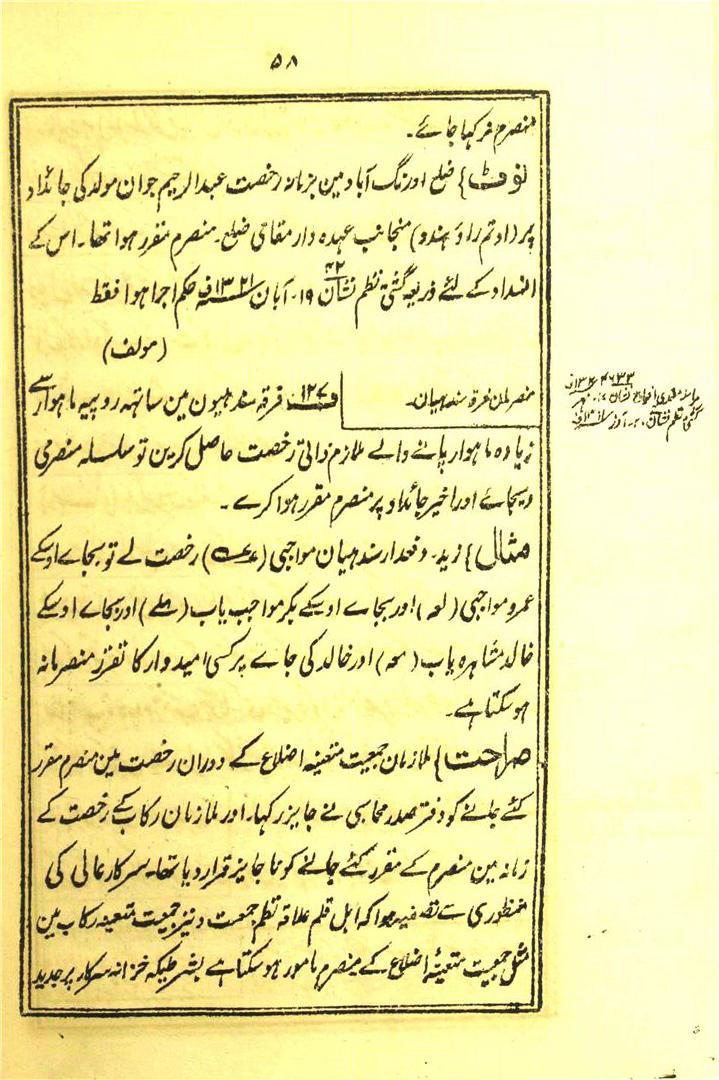 ۵۸
منصرم فر کہا جائے۔
نوٹ} ضلع اورنگ آباد مین بزمانہ رخصت عبدالرحیم جوان مولد کی جائداد
پر (اوتم راؤ ہندو) منجانب عہدہ دار مقامی ضلع۔ منصرم مقرر ہوا تھا۔ اس کے
انسداد کے لئے ذریعہ گشتی نظم نشان ۴۲ ۱۹۔ آبان ۱۳۲۱ف حکم اجرا ہوا فقط
(مولف)
منصرمان فرقہ سندہیان۔
۱۲۷ فرقہ سندہیون مین ساتہہ روپیہ ماہوار سے
زیادہ ماہوار پانے والے ملازم ذاتی رخصت حاصل کرین تو سلسلہ منصرمی
دیجائے اور اخیر جائداد پر منصرم مقرر ہوا کرے۔
مثال} زید۔ دفعدار سندہیان مواجبی رخصت لے تو بجاے اوسکے
عمرو مواجبی اور بجاے اوسکے بکر مواجب یاب اور بجاے اوسکے
خالد مشاہرہ یاب اور خالد کی جاے پر کسی امیدوار کا تقرر منصرمانہ
ہو سکتا ہے۔
صراحت} ملازمان جمعیت متعینہ اضلاع کے دوران رخصت مین منصرم مقرر
کئے جانے کو دفتر صدر محاسبی نے جایز رکہا۔ اور ملازمان رکاب کے رخصت کے
زمانہ مین منصرم کے مقرر کئے جانے کو نا جایز قرار دیا تھا۔ سرکار عالی کی
منظوری سے تصفیہ ہوا کہ اہل قلم علاقہ نظم جمعیت و نیز جمعیت متعینہ رکاب مین
مثل جمعیت متعینہ اضلاع کے منصرم مامور ہو سکتا ہے بشرطیکہ خزانہ سرکار پر جدید